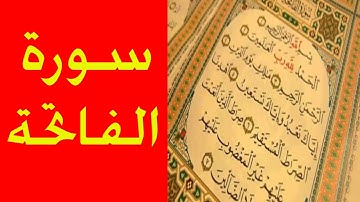 سورة
الفاتحة
ٱلۡحَمۡدُ
ٱلرَّحۡمَٰنِ ٱلرَّحِيمِ مَٰلِكِ يَوۡمِ ٱلدِّينِ
إِيَّاكَ نَعۡبُدُ وَإِيَّاكَ نَسۡتَعِينُ ٱهۡدِنَا
ٱلصِّرَٰطَ ٱلۡمُسۡتَقِيمَ صِرَٰطَ ٱلَّذِينَ أَنۡعَمۡتَ
عَلَيۡهِمۡ غَيۡرِ ٱلۡمَغۡضُوبِ عَلَيۡهِمۡ
وَلَا ٱلضَّآلِّينَ